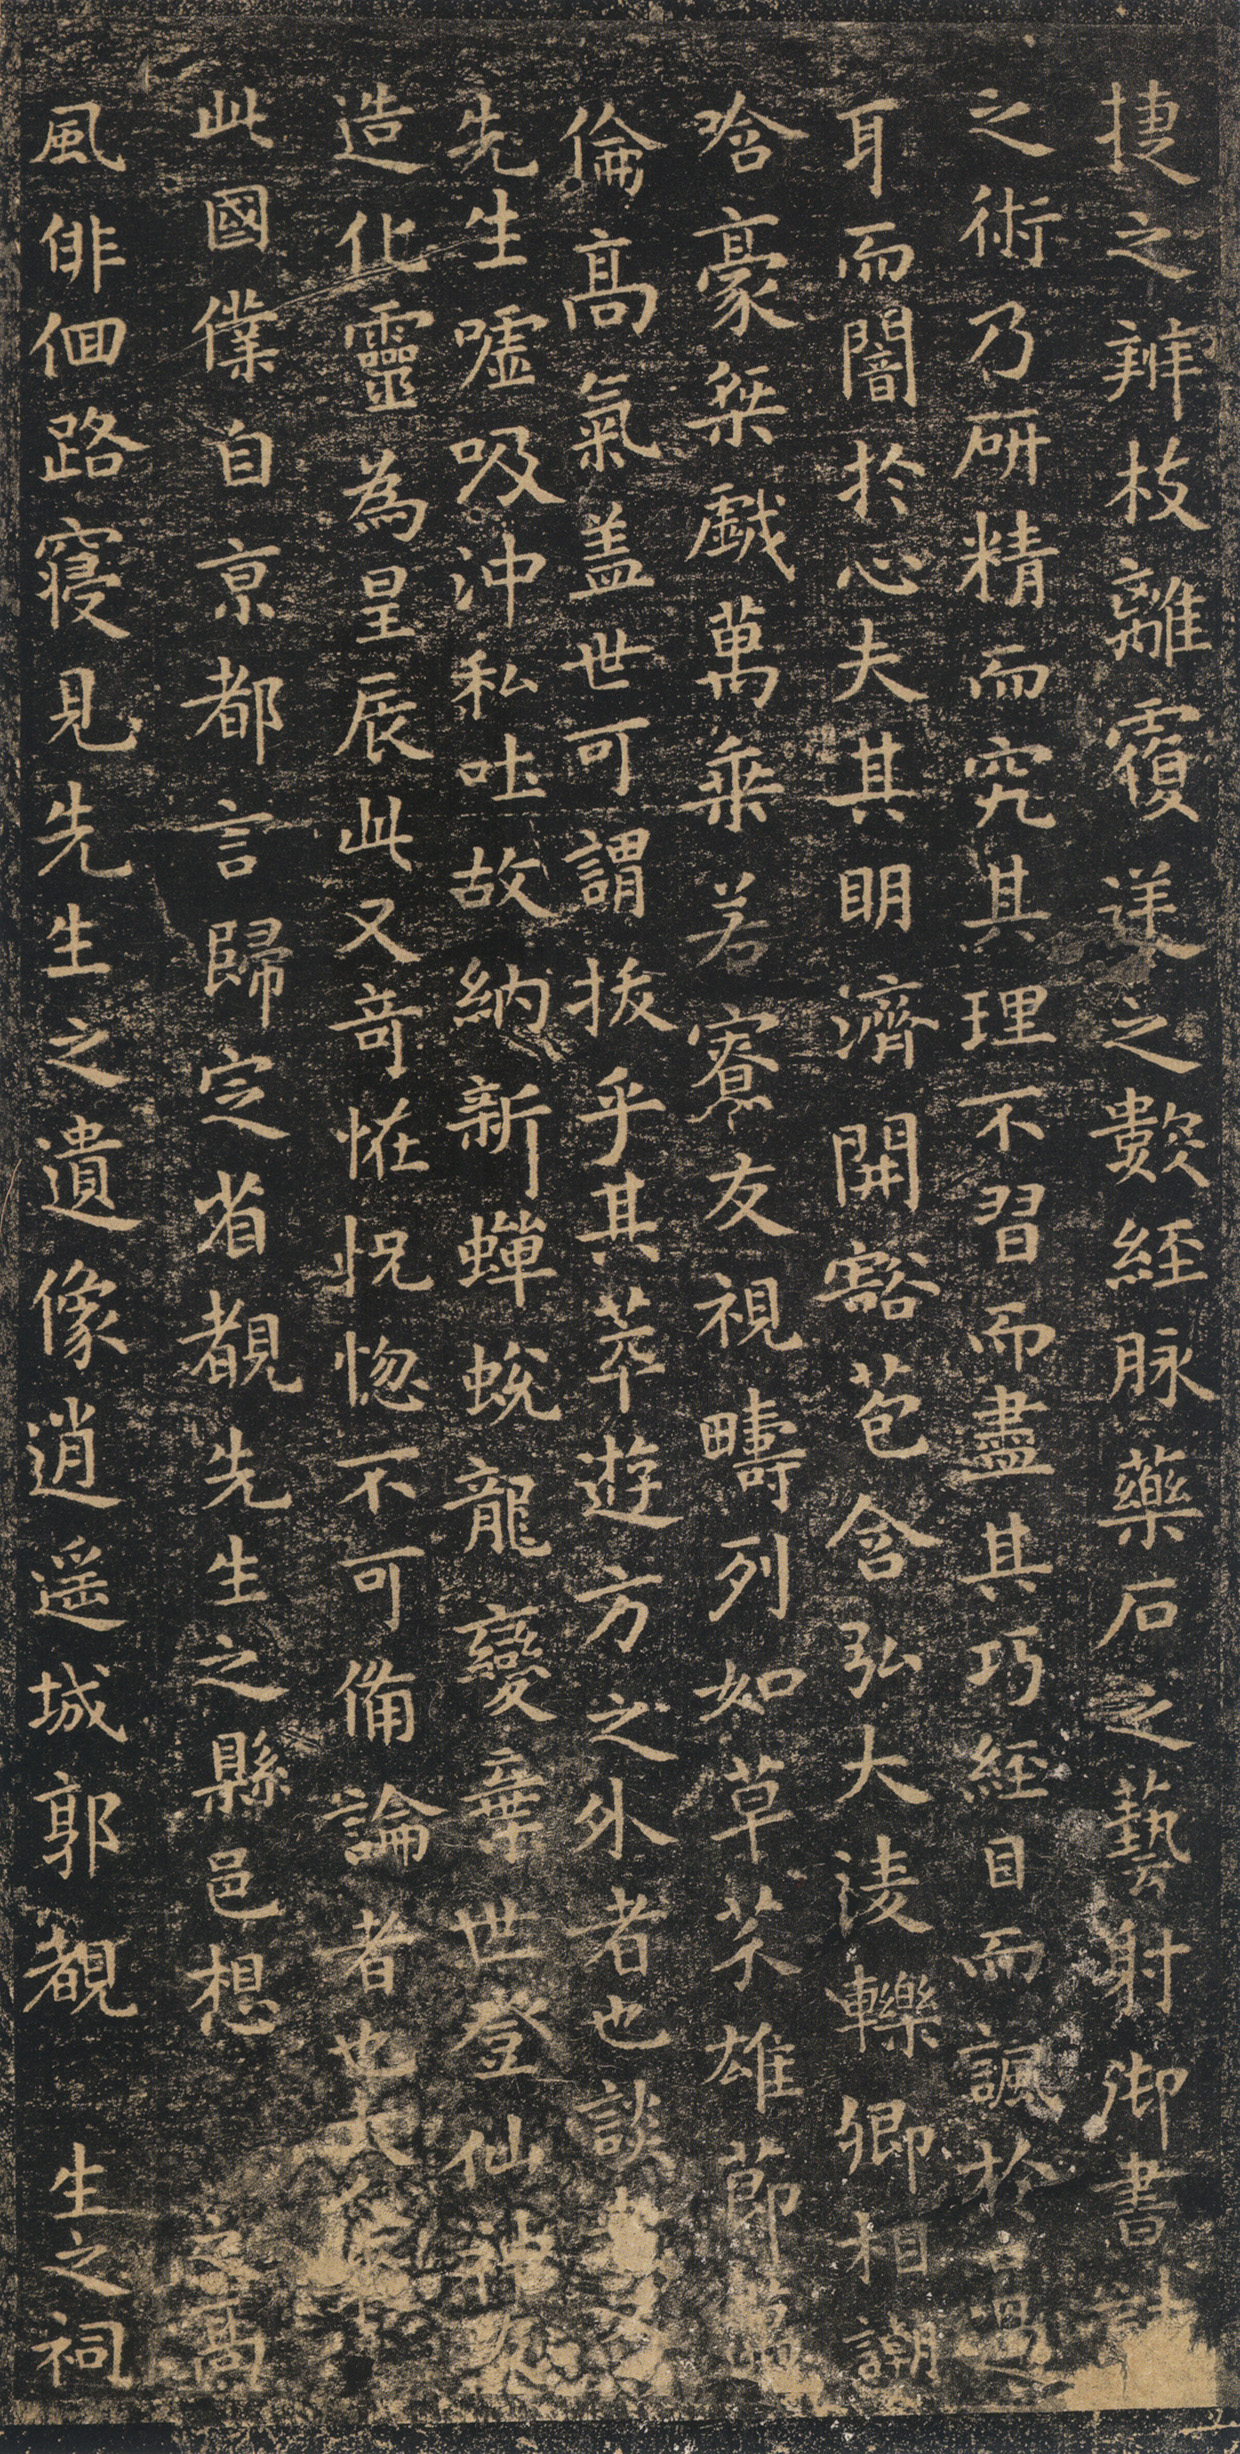 捷之辨枝離覆逆之數經脉藥石之藝射御書計
之術乃研精而究其理不習而盡其巧經目而諷於口過
耳而闇於心夫其明濟開豁苞含弘大淩轢卿相謿
哈豪桀戲萬乘若寮友視疇列如草芥雄莭邁
倫高氣盖世可謂拔乎其萃遊方之外者也談者又
先生噓吸沖和吐故納新蟬蛻龍變棄世登仙神友
造化靈為星辰此又奇恠怳惚不可備論者也大人
此國僕自京都言歸定省覩先生之縣邑想 之高
風俳佪路寢見先生之遺像逍遥城郭覩 生之祠